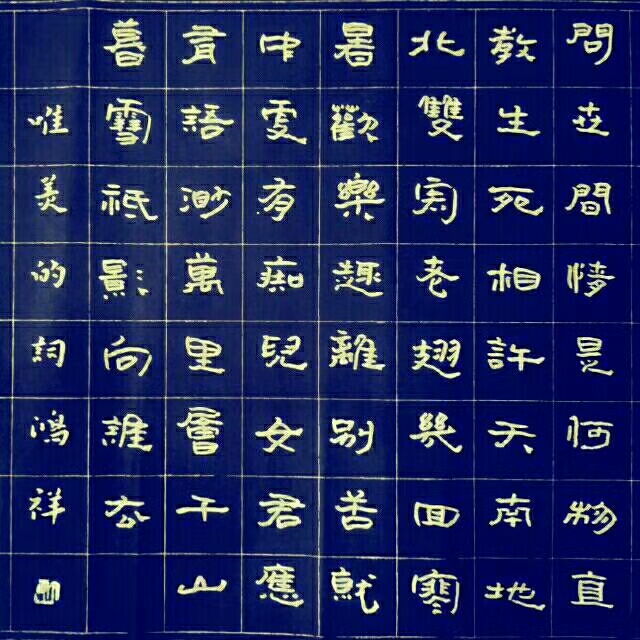 問世間情是何物直
教生死相許天南地
北雙客老翅幾回寒
暑歡樂趣離別苦就
中更有痴兒女君應
有語渺萬里層千山
暮雪祇影向誰去
唯美的詞鴻祥